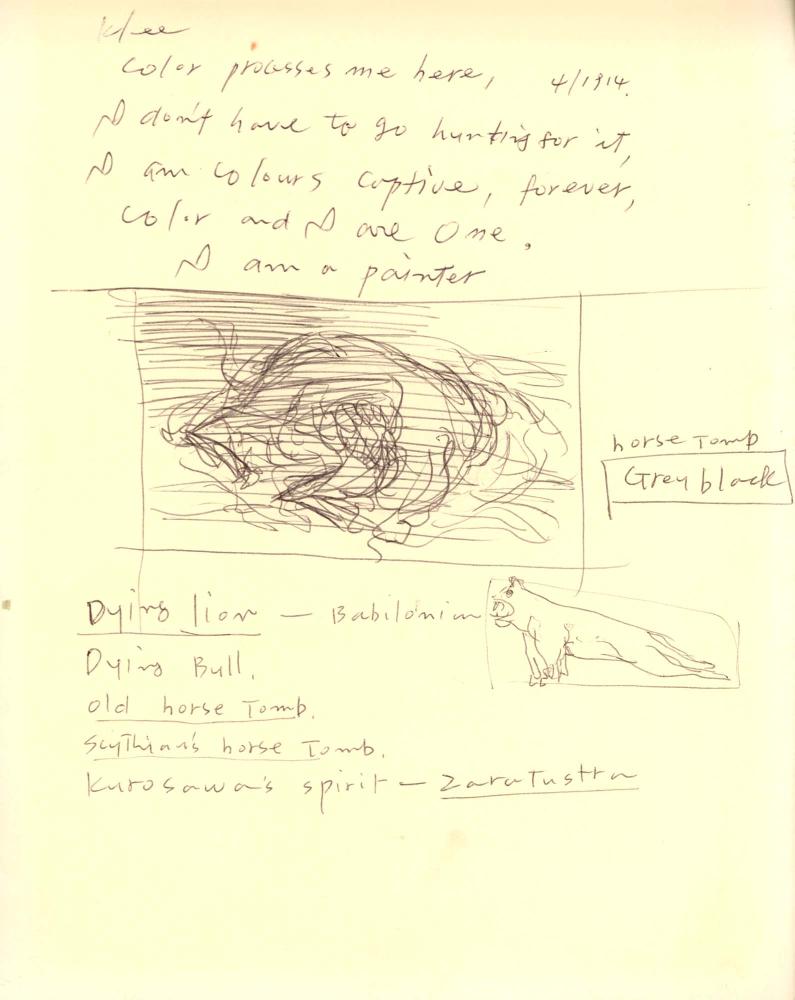 Klee
Color processes me here, 4/1914.
I don't have to go hunting for it,
I am colours captive, forever,
Color and I are One.
I am a painter
horse Tomp
Grey black
Dying lion — Babilonian
Dying Bull.
old horse Tomb.
Scythian's horse Tomb.
Kurosawa's spirit — Zaratustra